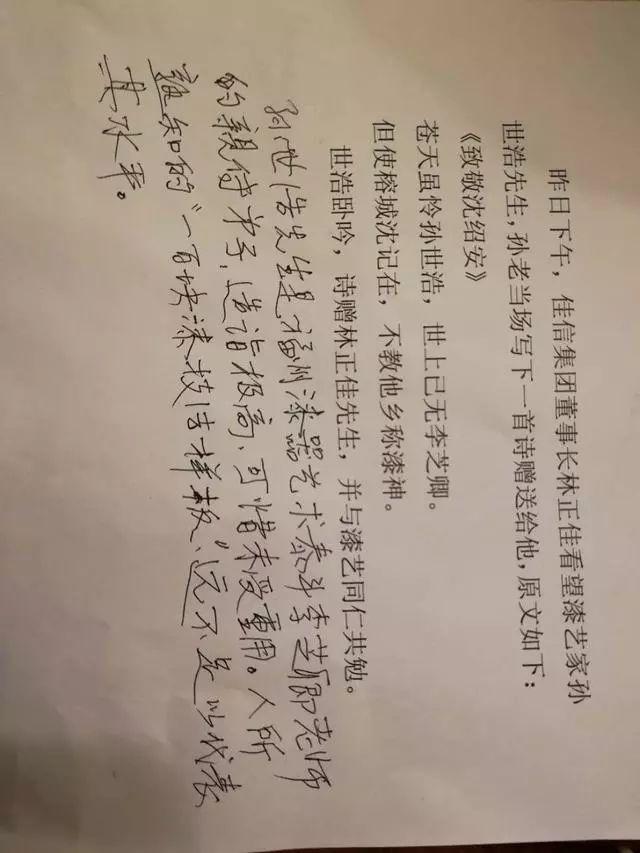 昨日下午，佳信集团董事长林正佳看望漆艺家孙
世浩先生，孙老当场写下一首诗赠送给他，原文如下：
《致敬沈绍安》
苍天虽怜孙世浩，世上已无李芝卿。
但使榕城沈记在，不教他乡称漆神。
世浩卧吟，诗赠林正佳先生，并与漆艺同仁共勉。
孙世浩先生是福州漆器艺术泰斗李芝卿老师
的親传弟子，造诣极高，可惜未受重用。人所
知的“一百块漆技法样板”远不足以代表
其水平。